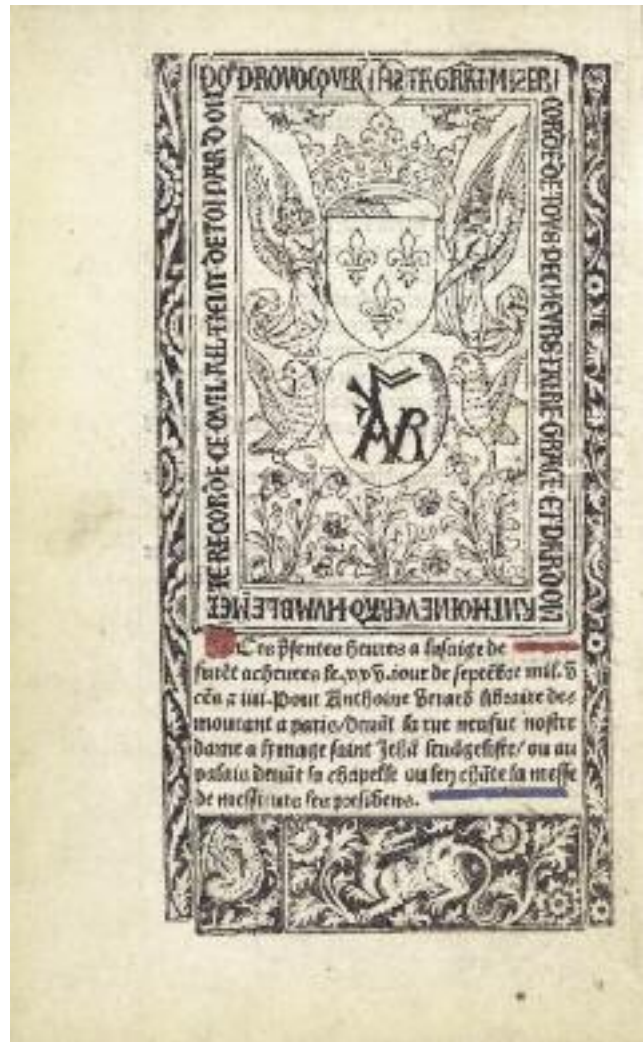 POVR PROVOCQVER IHS TA GRĀT MISERI
CORDE DE TOVS PECHEVRS FAIRE GRACE ET PARDON
ANTHOINE VERAD HVMBLEMĒT
TE RECORDE CE QVIL A IL TIENT DE TOI PAR DON
AVR
Ces p̄sentes heures a lusaige de
furēt acheuees le .xxv. iour de septēbre mil. v
cēs z
Pour Anthoine Verard libraire de
mourant a paris/ deuāt la rue neufue nostre
dame a lymage saint Jehā leuāgeliste/ ou au
palais deuāt la chapelle ou len chāte la messe
de messieurs les presidens.